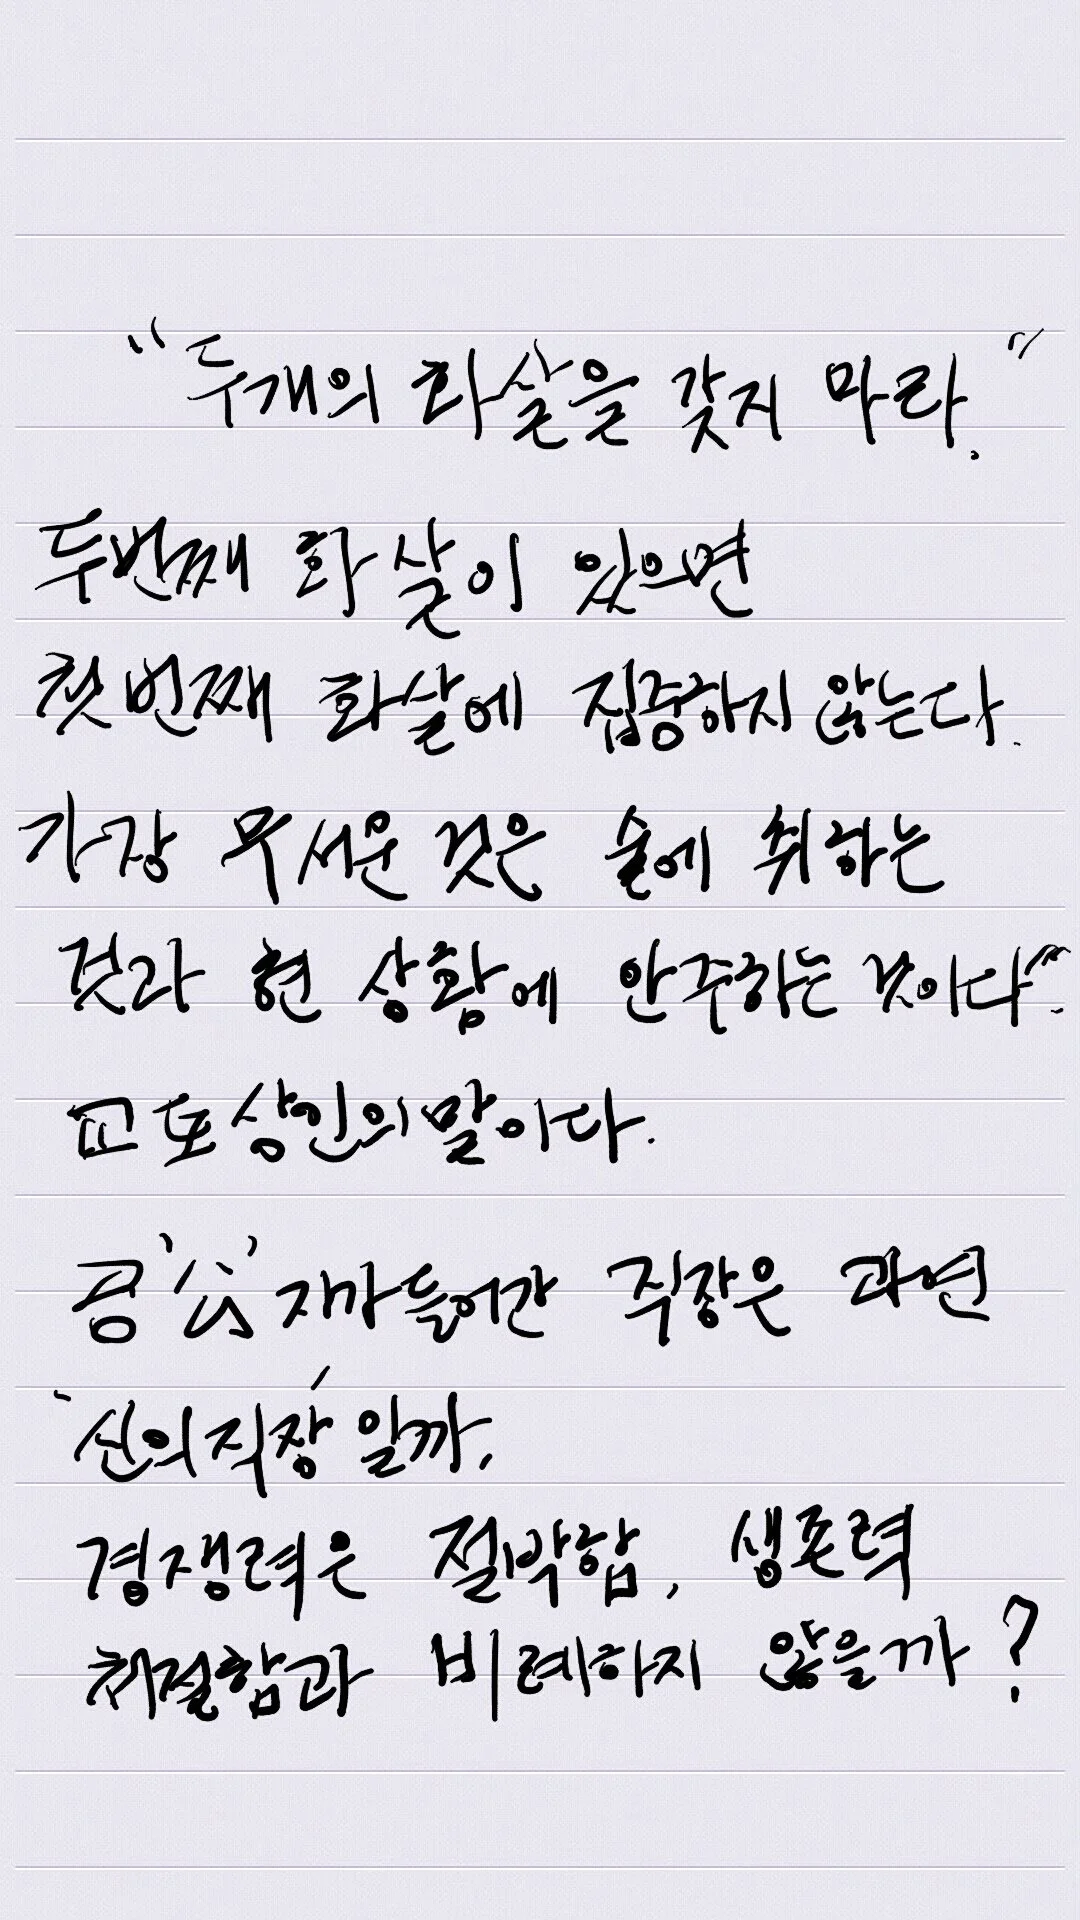 "두개의 화살을 갖지 마라."
두번째 화살이 있으면
첫번째 화살에 집중하지 않는다.
가장 무서운 것은 술에 취하는
것과 현 상황에 안주하는 것이다".
교토상인의 말이다.
공'公'자가들어간 직장은 과연
'신의직장'일까,
경쟁력은 절박함, 생존력
처절함과 비례하지 않을까?